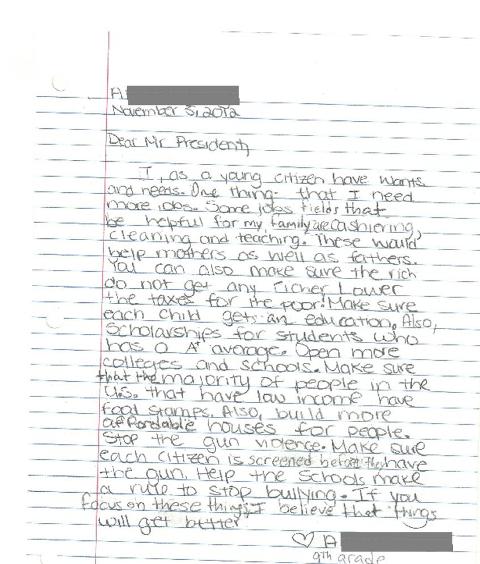 A.
November 5, 2012
Dear Mr President,
I, as a young citizen have wants
and needs. One thing that I need
more jobs. Some jobs fields that
be helpful for my family are cashiering,
cleaning and teaching. These would
help mothers as well as fathers.
You can also make sure the rich
do not get any richer! Lower
the taxes for the poor! Make sure
each child gets an education. Also,
scholarships for students who
has a A+ average. Open more
colleges and schools. Make sure
that the majority of people in the
U.S. that have low income have
food stamps. Also, build more
affordable houses for people.
Stop the gun violence. Make sure
each citizen is screened before they have
the gun. Help the schools make
a rule to stop bullying. If you
focus on these things, I believe that things
will get better
♡ A
9th grade